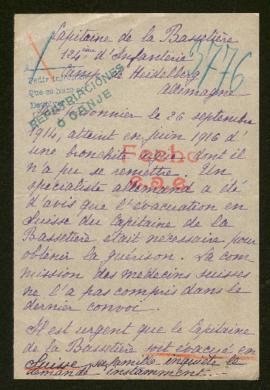 Capitaine de la Bassetière
124ème d'Infanterie
Camp de Heidelberg
Allemagne
3776
Pedir
Que se haga
REPATRIACIONES
O CANJE
Prisonnier le 26 septembre
1914, atteint en Juin 1916 d'
une bronchite dont il
n'a pu se remettre. Un
Fecho
spécialiste allemand a été
d'avis que l'évacuation en
Suisse du Capitaine de la
Bassetière était nécessaire pour
obtenir la guérison. La com
mission des médecins suisses
ne l'a pas compris dans le
dernier convoi.
Il est urgent que le Capitaine
de la Bassetière soit évacué en
Suisse, sa famille inquiète le
demande instamment.